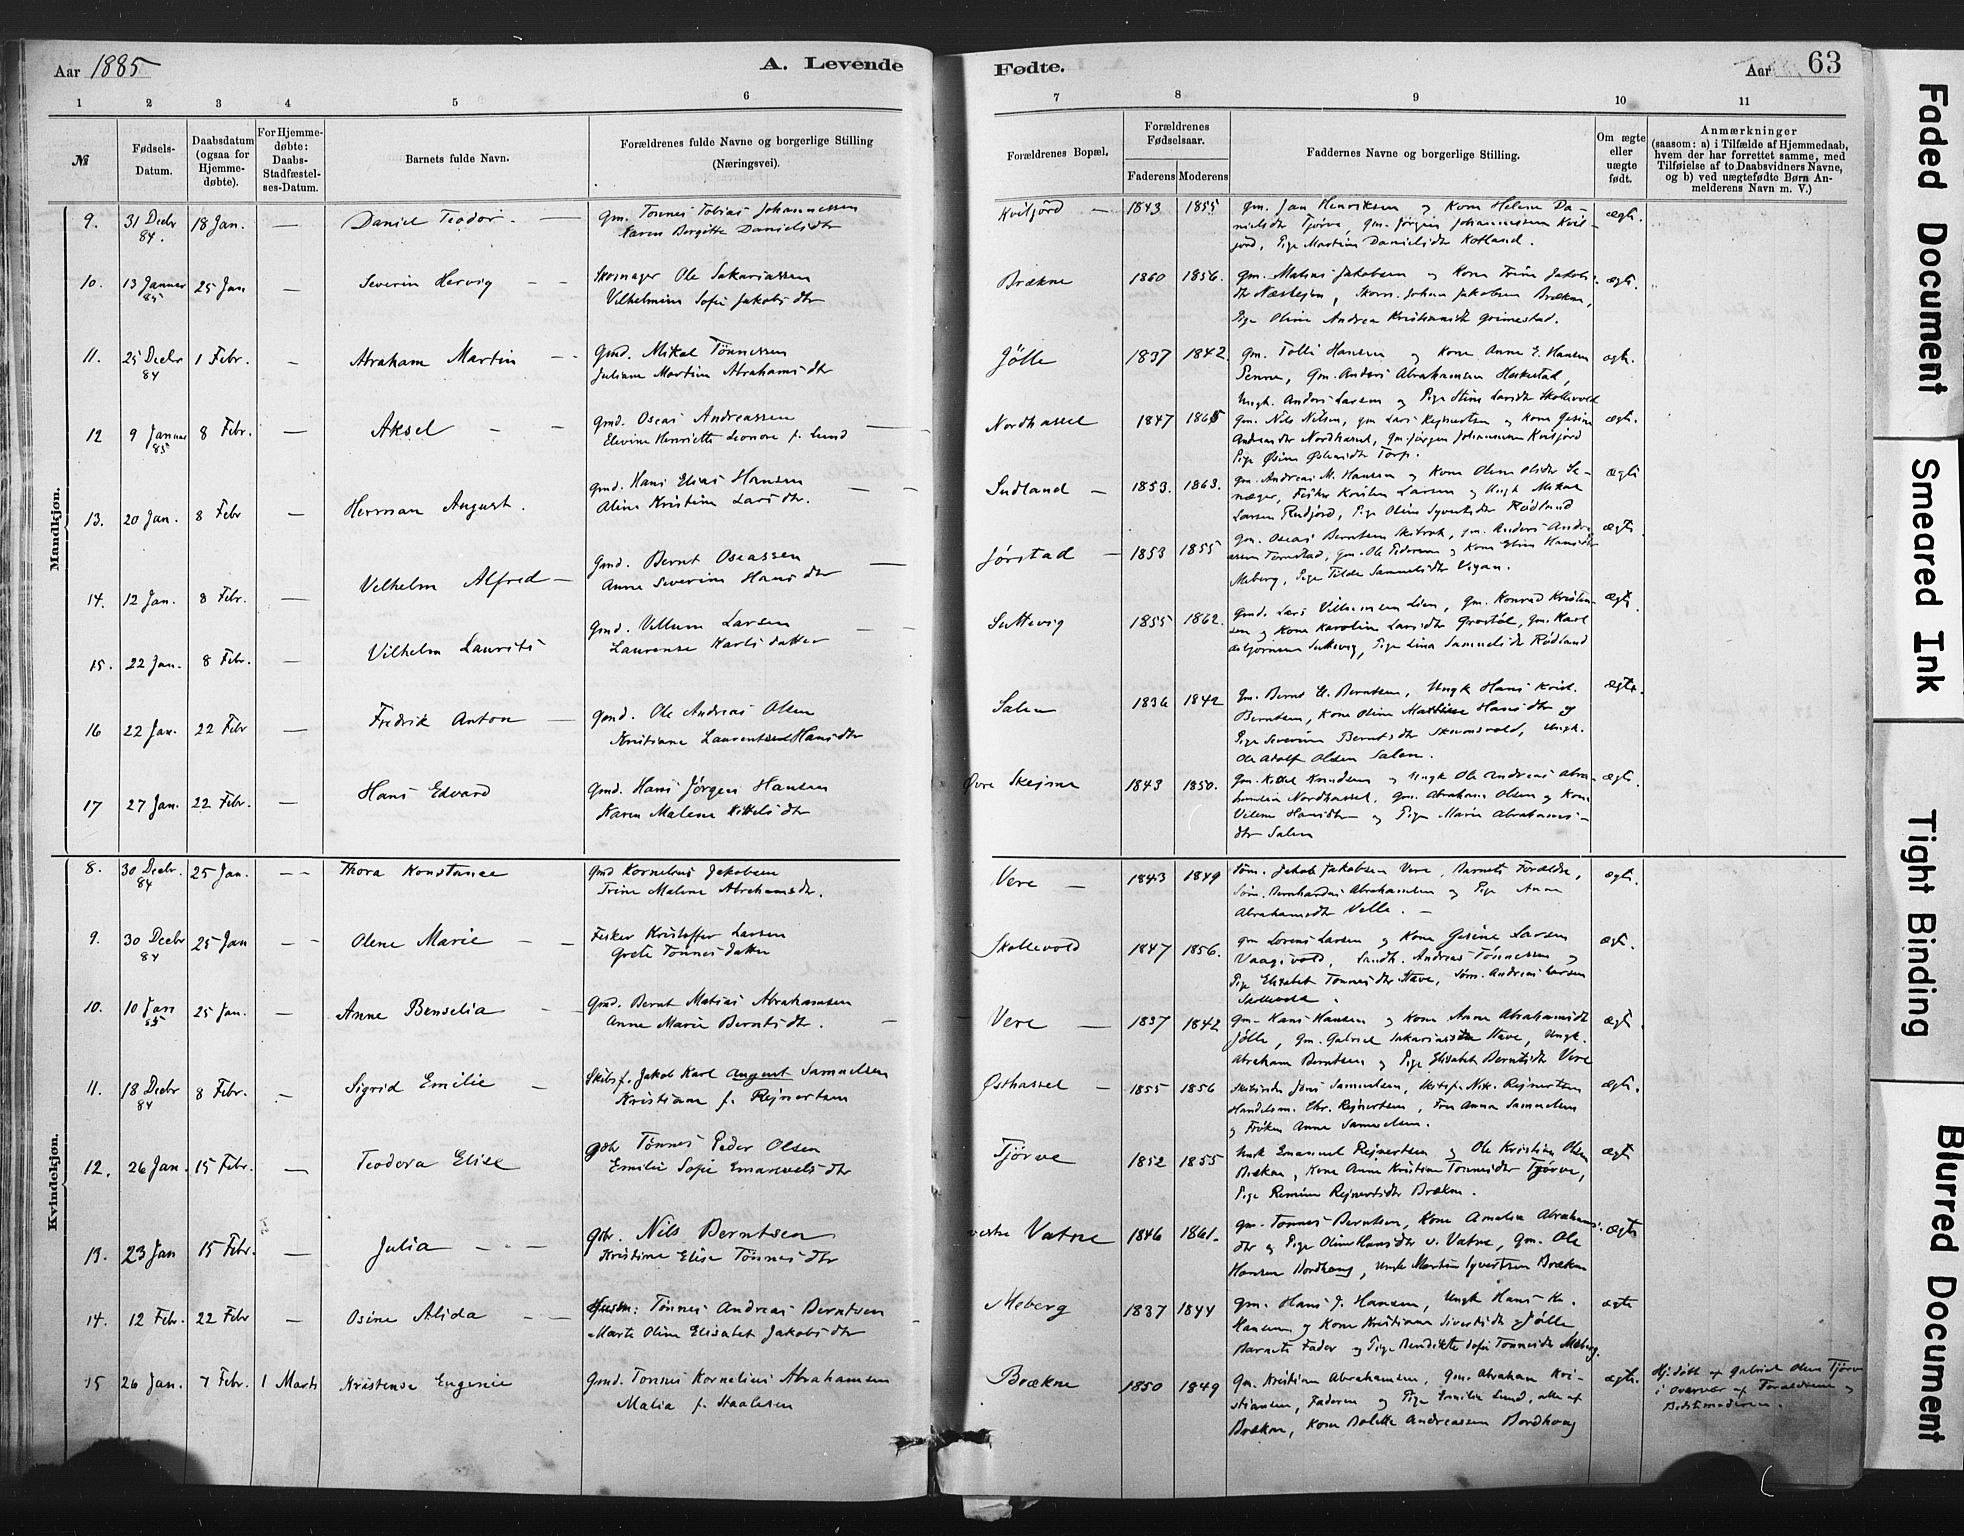 Aar 1885
A. Levende
Fødte.
Aar
63
1 2 3 4 5 6 7 8 9 10 11
№
Fødsels-
Datum.
Daabsdatum
(ogsaa for
Hjemme-
døbte).
For Hjemme-
døbte:
Daabs-
Stadfæstel-
ses-Datum.
Barnets fulde Navn.
Forældrenes fulde Navne og borgerlige Stilling
(Næringsvei).
Forældrenes Bopæl.
Forældrenes
Fødselsaar.
Faderens Moderens
Faddernes Navne og borgerlige Stilling.
Om ægte
eller
uægte
født.
Anmærkninger
(saasom: a) i Tilfælde af Hjemmedaab,
hvem der har forrettet samme, med
Tilføielse af to Daabsvidners Navne,
og b) ved uægtefødte Børn An-
melderens Navn m. V.)
Mandkjøn.
9. 31 Decbr 84. 18 Jan. — Daniel Teodor. —
gm. Tønnes Tobias Johannessen
Karen Bergitte Danielsdtr
Kviljord — 1843 1855
gm. Jan Henriksen og Kone Helene Da-
nielsdtr Tjørve, gm. Jørgen Johannessen Kvil-
jord, Pige Martine Danielsdtr Kotland.
ægte.
10. 13 Januar 85 25 Jan — Severin Hervig — —
Skomager Ole Sakariassen
Vilhelmine Sofie Jakobsdtr
Brækne 1860 1856.
gm. Matias Jakobsen og Kone Trine Jakobs-
dtr, Skom. Johan Jakobsen Brækne,
Pige Oline Andrea Grimestad.
ægte.
11. 25 Decbr 84 1 Febr. — Abraham Martin — —
Gmd. Mikal Tønnessen
Juliane Martine Abrahamsdtr
Jølle 1837 1842.
gm. Tolli Hansen og Kone Anne E. Hansen
Penne, Gm. Anders Abrahamsen
Ungk. Anders Larsen og Pige Stine Larsdtr Skollevold
ægte.
12 9 Januar 85 8 Febr. — Aksel — —
Gmd. Oscar Andreassen
Elevine Henriette Leonore f. Lund
Nordhassel 1847 1865
Gm. Nils Nilsen, gm Lars Rejnertsen og Kone Gesine
Andreasdtr Nordhassel, Gm. Jørgen Johannessen Kviljord
Pige Torp.
ægte.
13. 20 Jan. 8 Febr — Herman August.
gmd. Hans Elias Hansen
Aline Kristine Larsdtr.
Sudland — 1853. 1863.
gm. Andreas M. Hansen og Kone Olene Olsdtr Se-
næger, Fisker Kristen Larsen og Ungk Mikal
Larsen Rudjord, Pige Oline Syvertsdtr Rødland
ægte
14. 12 Jan. 8 Febr. — Vilhelm Alfred —
Gmd. Bernt Oscassen
Anne Severine Hansdtr
Jørstad — 1853 1855
gm. Oscar Berntsen, gm. Anders Andre-
assen, gm. Ole Pedersen og Kone Eline Hansdtr
Meberg, Pige Tilde Samuelsdtr Vigan.
ægte.
15. 22 Jan. 8 Febr. — Vilhelm Laurits
Gmd. Villum Larsen
Laurense Karlsdatter
Suttevig 1855 1862.
gmd. Lars Villumsen Lien, gm. Konrad Kristen-
sen og Kone Karoline Larsdtr Grostøl, gm. Karl
Asbjørnsen Suttevig, Pige Lina Samuelsdtr Rødland
ægte.
16 22 Jan. 22 Febr — Fredrik Anton —
Gmd. Ole Andreas Olsen
Kristiane Hansdtr
Salen 1836 1842
Gm. Bernt E. Berntsen, Ungk Hans Krist.
Berntsen, Kone Oline Hansdtr og
Pige Severine Berntsdtr, Ungk.
Ole Adolf Olsen Salen.
ægte.
17 27 Jan. 22 Febr. — Hans Edvard
Gmd. Hans Jørgen Hansen
Karen Malene Kittelsdtr
Øvre Skejsne 1843 1850.
Gm. Kittel Knudsen og Ungk Ole Andreas Abra-
Nordhassel, Gm. Abraham Olsen og Kone
Velene Hansdtr og Pige Marie Abrahams-
dtr Salen
ægte.
Kvindekjøn.
8. 30 Decbr. 84 25 Jan. — — Thora Konstance
gmd Kornelius Jakobsen
Trine Malene Abrahamsdtr.
Vere — 1843 1849
Søm. Jakob Jakobsen Vere, Barnets Forældre,
Søm. Bernhardus Abrahamsen og Pige Anna
Abrahamsdtr Velle. —
ægte.
9. 30 Decbr 84 25 Jan — — Olene Marie — —
Fisker Kristoffer Larsen
Grete Tønnesdatter
Skollevold 1847 1856.
gm Lorens Larsen og Kone Gesine Larsen
Vaagsvold, Andreas Tønnessen og
Pige Elisabet Tønnesdtr Stave, Søm. Andreas Larsen
Skollevold.
ægte.
10. 10 Jan 85 25 Jan. — Anne Benselia — —
Gmd. Bernt Matias Abrahamsen
Anne Marie Berntsdtr. —
Vere — 1837 1842
gm. Hans Hansen og Kone Anne Abrahamsdtr
Jølle, Gm. Gabriel Sakariassen Stave, Ungk.
Abraham Berntsen og Pige Elisabet Berntsdtr Vere
ægte.
11. 18 Decbr 84 8 Febr. — Sigrid Emilie —
Skibsf. Jakob Karl August Samuelsen
Kristiane f. Rejnertsen
Østhassel — 1855 1856
Jens Samuelsen, Skibsf. Nik. Rejnertsen
Handelsm. Chr. Rejnertsen, Fru Anna Samuelsen
og Frøken Anne Samuelsen.
ægte.
12. 26 Jan. 15 Febr. — Teodora Elise
gbr Tønnes Peder Olsen
Emilie Sofie Emanuelsdtr
Tjørve 1852 1855
Ungk Emanuel Rejnertsen og Ole Kristian Olsen
Brækne, Kone Anne Kristine Tønnesdtr Tjørve,
Pige Remine Rejnertsdtr Brækne.
ægte
13. 23 Jan 15 Febr. — Julia — —
gbr. Nils Berntsen
Kristine Elise Tønnesdtr
vestre Vatne 1846 1861.
gm. Tønnes Berntsen, Kone Amalia Abrahams-
dtr og Pige Oline Hansdtr v. Vatne, gm. Ole
Hansen Nordhaug, Ungk Martin Syvertsen Brækne
ægte
14. 12 Febr. 22 Febr — Osine Alida — —
Husm: Tønnes Andreas Berntsen
Marte Oline Elisabet Jakobsdtr
Meberg 1837 1844
gm. Hans J. Hansen, Ungk Hans Kr.
Hansen og Kone Kristiane Sivertsdtr Jølle
Barnets Fader og Pige Bendikte Sofie Tønnesdtr Meberg.
ægte
15 26 Jan. 7 Febr. 1 Marts Kristense Eugenie
Gmd. Tønnes Kornelius Abrahamsen
Malia f. Staalesen
Brækne 1850 1849
Gm. Kristian Abrahamsen, Gm. Abraham Kri-
stiansen, Faderen og Pige Emilie Lund, alle af
Brækne, Kone Bolette Andreassen Nordhaug
ægte.
Hj. døbt af Gabriel Olsen Tjørve
i Overvær af Forældrene og
Bedstemoderen.
Faded Document
Smeared Ink
Tight Binding
Blurred Document